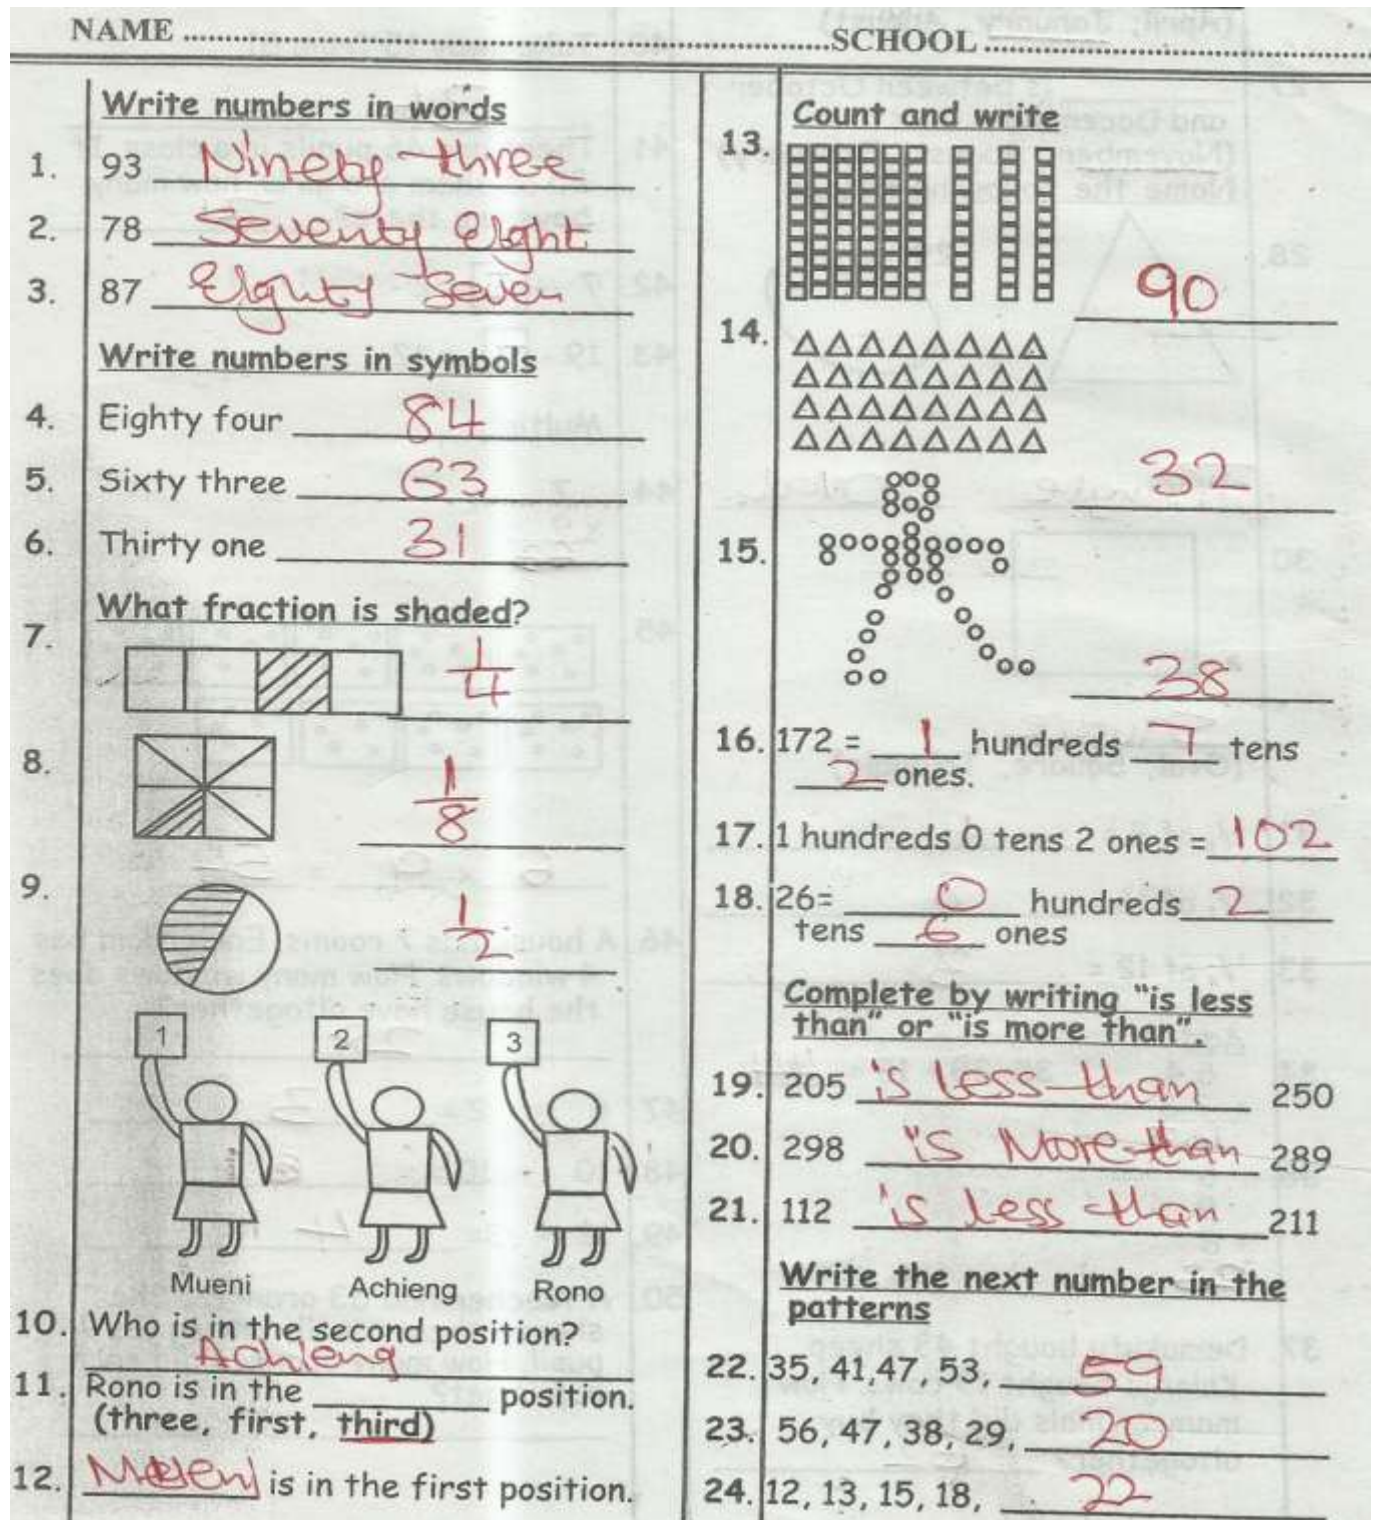 NAME ..........SCHOOL ..........
Write numbers in words
1. 93 Ninety three
2. 78 Seventy Eight
3. 87 Eighty Seven
Write numbers in symbols
4. Eighty four 84
5. Sixty three 63
6. Thirty one 31
What fraction is shaded?
7. 1/4
8. 1/8
9. 1/2
1 2 3
Mueni Achieng Rono
10. Who is in the second position?
Achieng
11. Rono is in the ______ position.
(three, first, third)
12. Mueni is in the first position.
Count and write
13. 90
14. 32
15. 38
16. 172 = 1 hundreds 7 tens
2 ones.
17. 1 hundreds 0 tens 2 ones = 102
18. 26= 0 hundreds 2
tens 6 ones
Complete by writing "is less
than" or "is more than".
19. 205 is less than 250
20. 298 is More than 289
21. 112 is less than 211
Write the next number in the
patterns
22. 35, 41,47, 53, 59
23. 56, 47, 38, 29, 20
24. 12, 13, 15, 18, 22